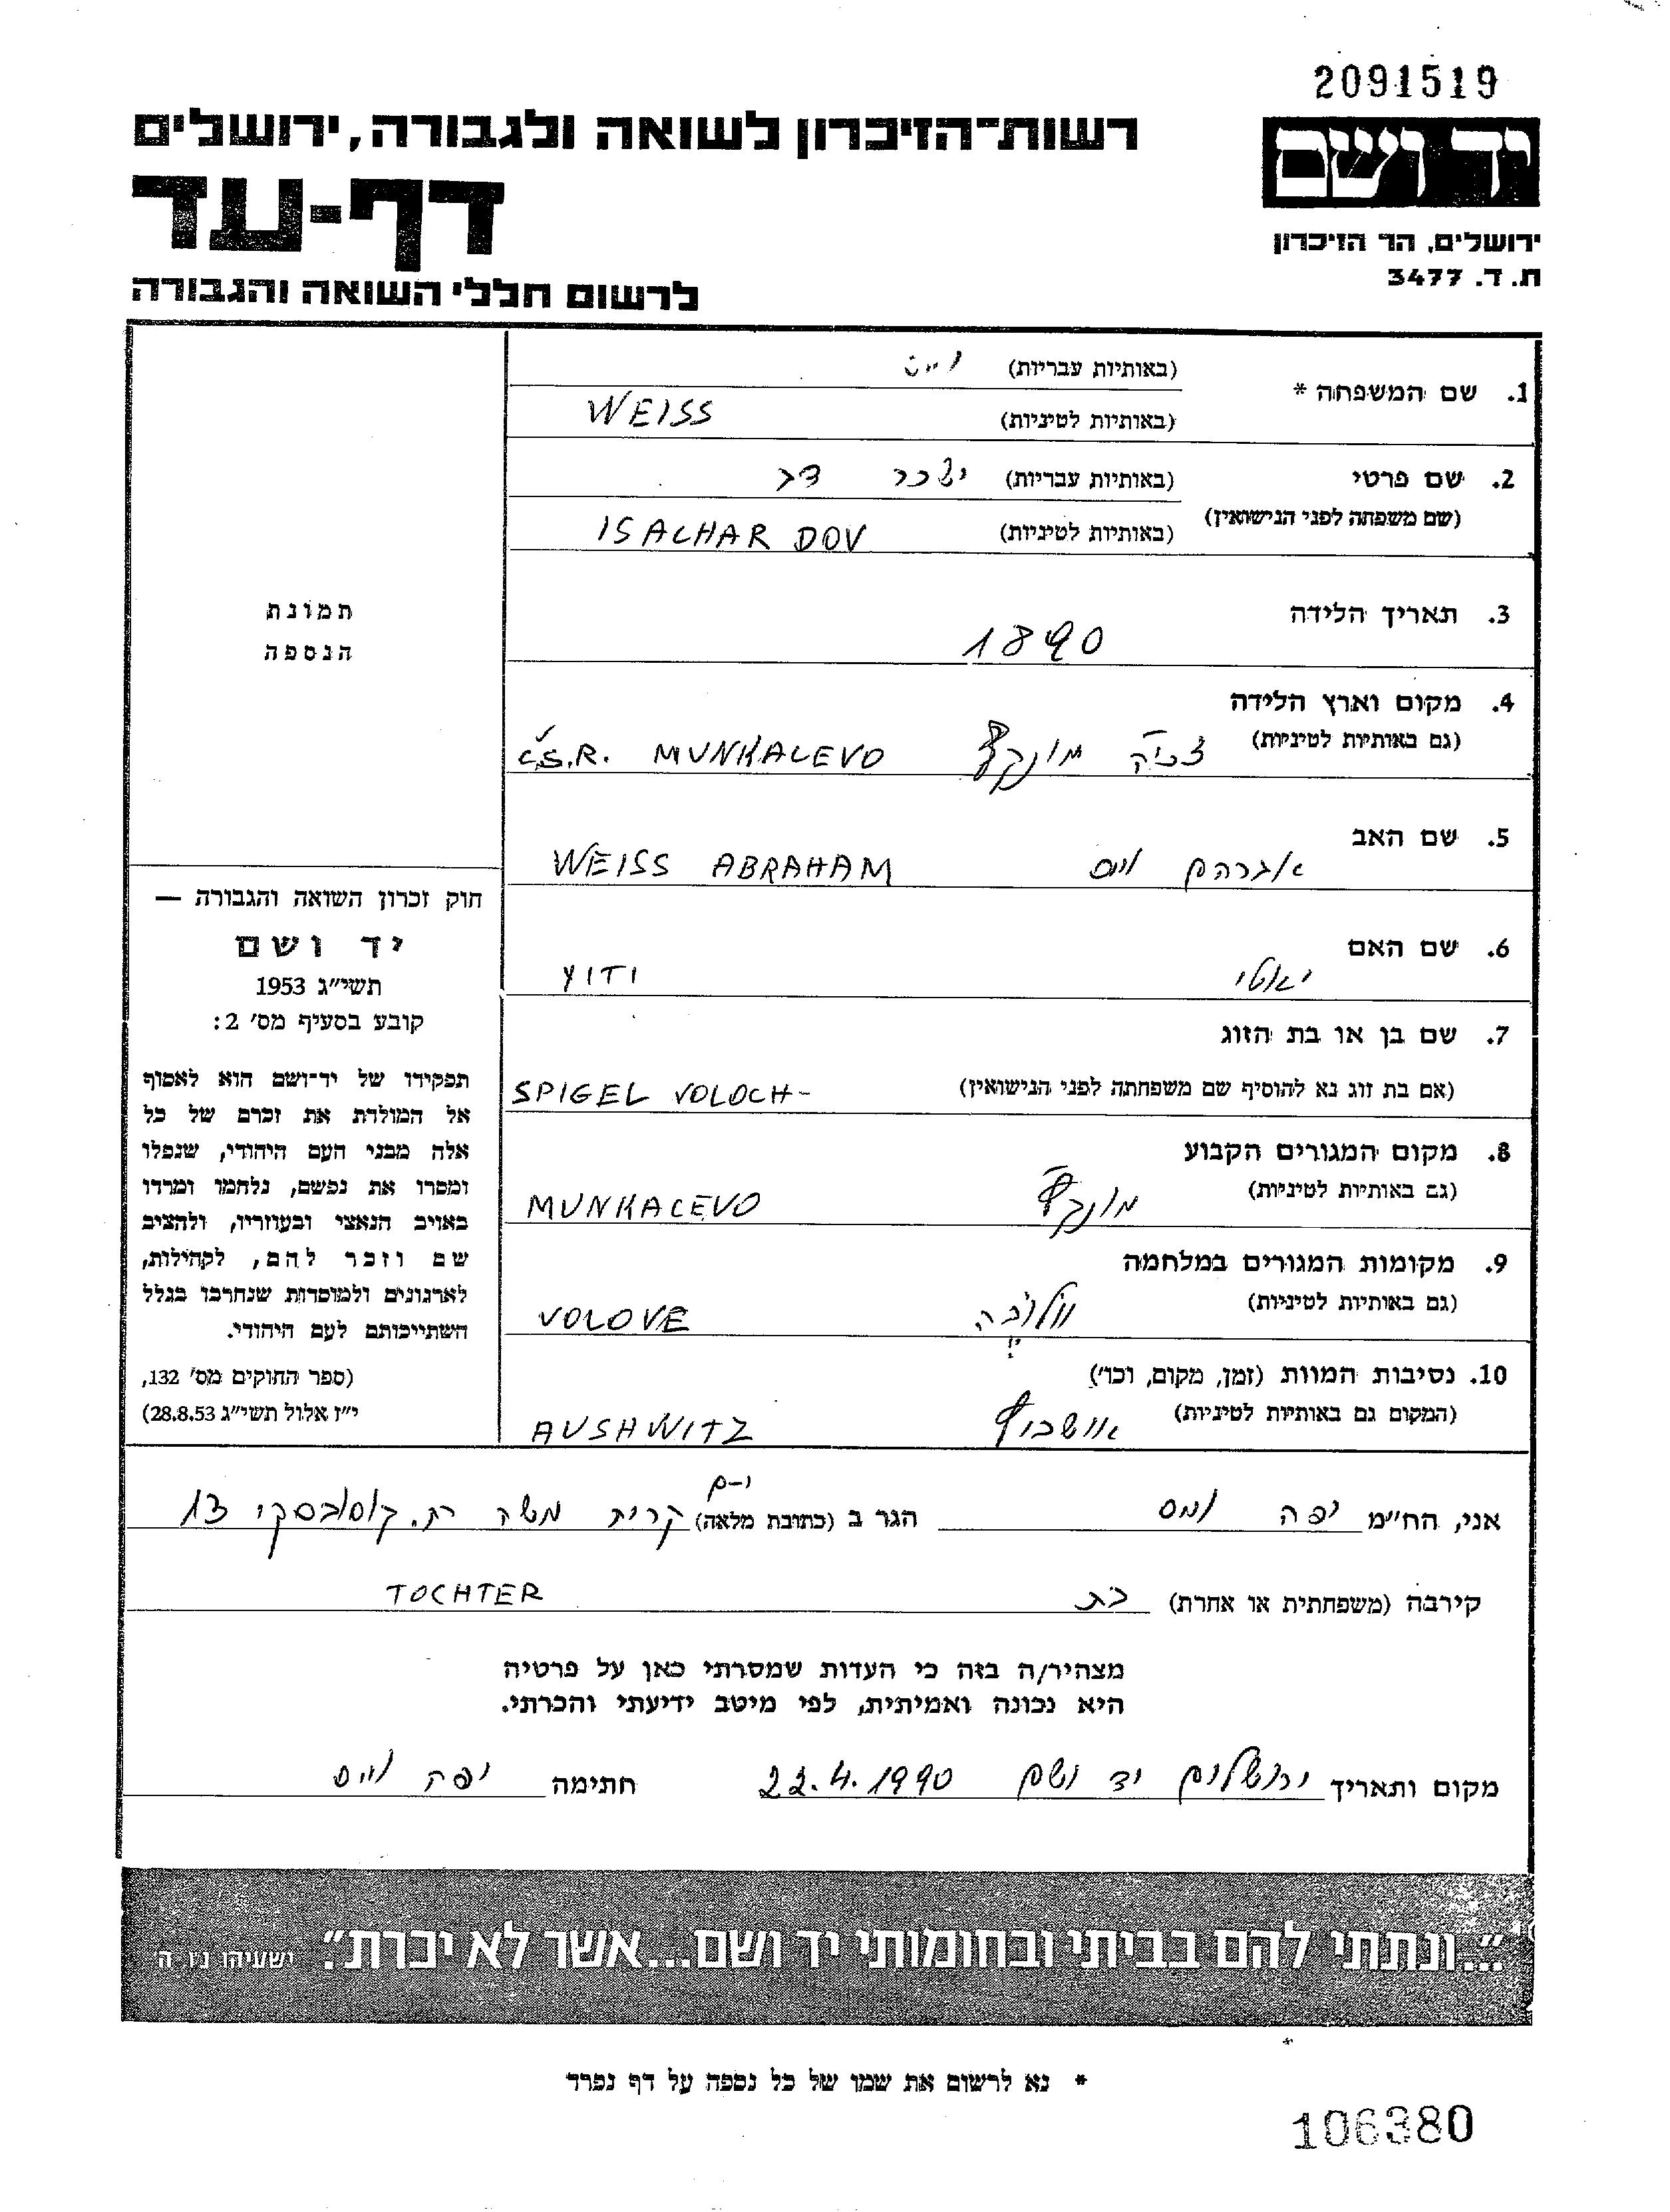 2091519
רשות־הזיכרון לשואה ולגבורה, ירושלים
יד ושם
דף-עד
ירושלים, הר הזיכרון
ת. ד. 3477
לרשום חללי השואה והגבורה
1. שם המשפחה *
(באותיות עבריות) וייס
(באותיות לטיניות) WEISS
2. שם פרטי
(באותיות עבריות) יששכר דב
(שם משפחה לפני הנישואין)
(באותיות לטיניות) ISACHAR DOV
3. תאריך הלידה
1890
תמונת
הנספה
4. מקום וארץ הלידה
(גם באותיות לטיניות) מונקץ Č.S.R. MUNKACEVO
5. שם האב
אברהם וייס WEISS ABRAHAM
6. שם האם
YITI
7. שם בן או בת הזוג
(אם בת זוג נא להוסיף שם משפחתה לפני הנישואין) SPIGEL VOLOCH-
8. מקום המגורים הקבוע
(גם באותיות לטיניות) מונקץ MUNKACEVO
9. מקומות המגורים במלחמה
(גם באותיות לטיניות) VOLOVE
10. נסיבות המוות (זמן, מקום, וכו')
(המקום גם באותיות לטיניות) אושביץ AUSHWITZ
חוק זכרון השואה והגבורה —
יד ושם
תשי"ג 1953
קובע בסעיף מס' 2:
תפקידו של יד־ושם הוא לאסוף
אל המולדת את זכרם של כל
אלה מבני העם היהודי, שנפלו
ומסרו את נפשם, נלחמו ומרדו
באויב הנאצי ובעוזריו, ולהציב
שם וזכר להם, לקהילות,
לארגונים ולמוסדות שנחרבו בגלל
השתייכותם לעם היהודי.
(ספר החוקים מס' 132,
י"ז אלול תשי"ג 28.8.53)
אני, הח"מ יפה וייס הגר ב (כתובת מלאה) קרית משה רח. 13 י-ם
קירבה (משפחתית או אחרת) בת TOCHTER
מצהיר/ה בזה כי העדות שמסרתי כאן על פרטיה
היא נכונה ואמיתית, לפי מיטב ידיעתי והכרתי.
מקום ותאריך ירושלים יד ושם 22.4.1990 חתימה יפה וייס
"...ונתתי להם בביתי ובחומותי יד ושם...אשר לא יכרת". ישעיהו נו ה
* נא לרשום את שמו של כל נספה על דף נפרד
106380